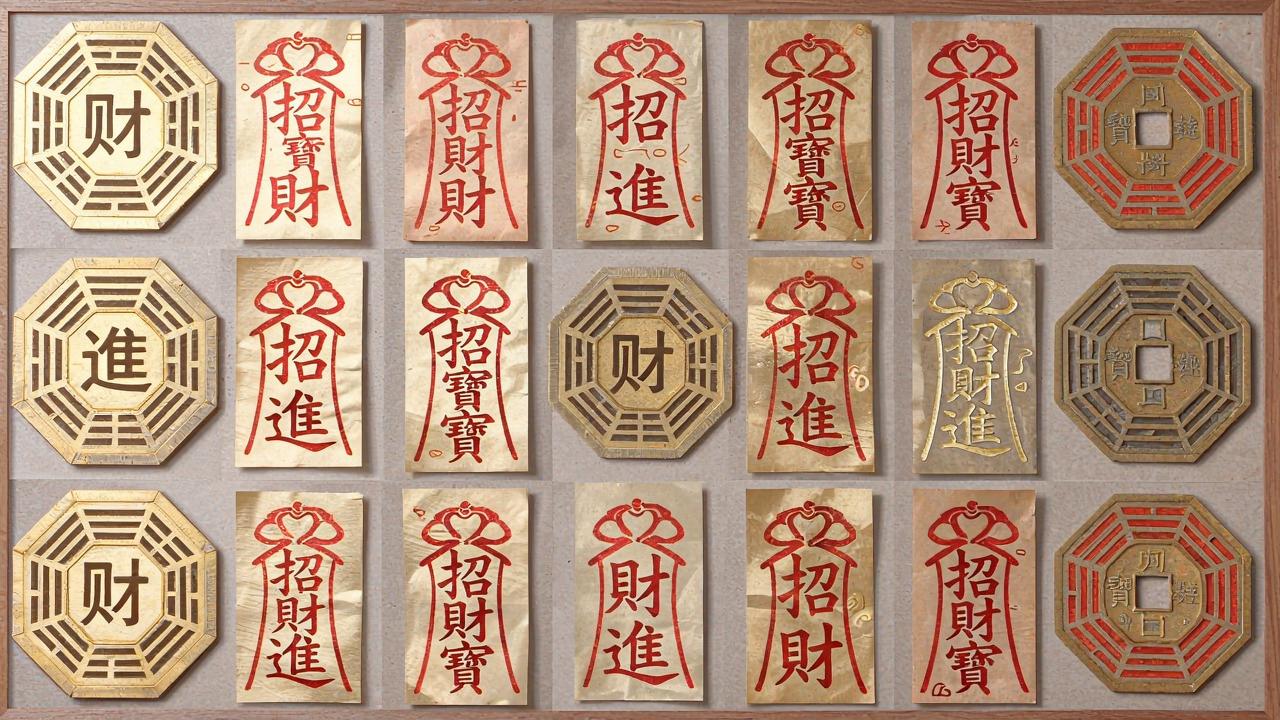 财
招寶財
招財財
招進
招寶寶
招財寶
進
招進
招寶寶
财
招進
招財進
财
招財進
招財寶
財進
招財
招財寶